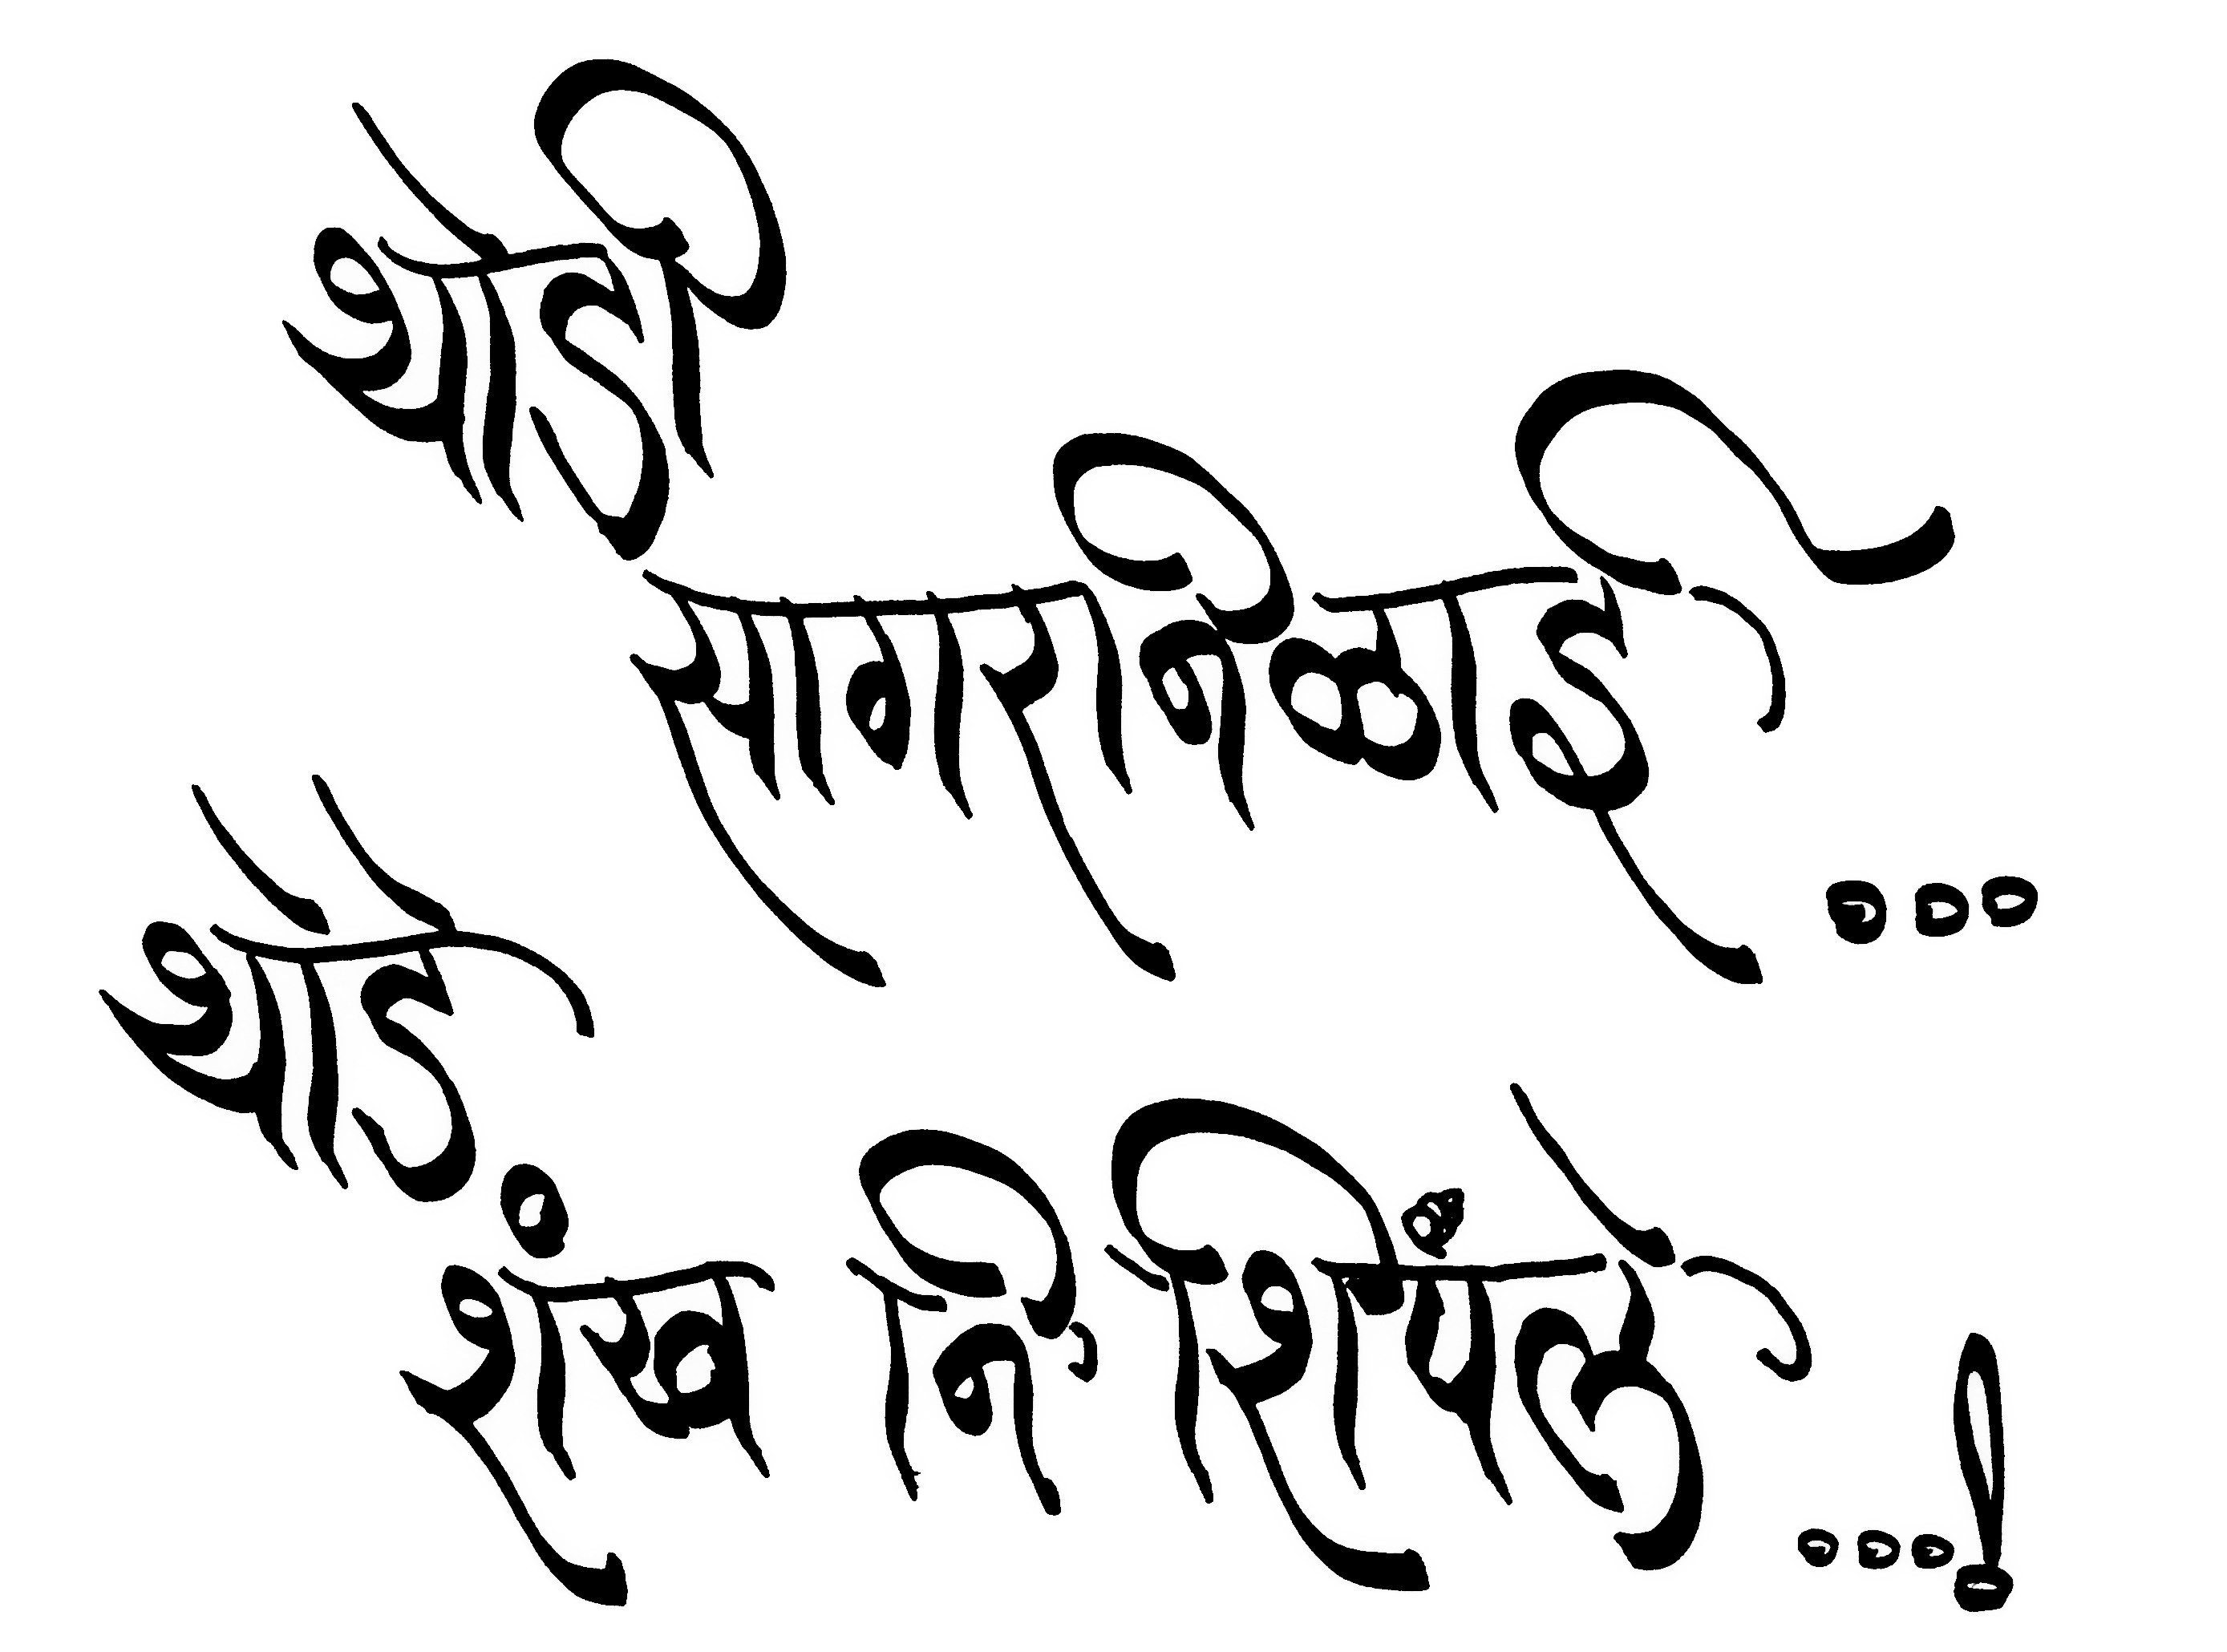 थोडी
सागरनिळाई ...
थोडे
शंख नि शिंपले ...!